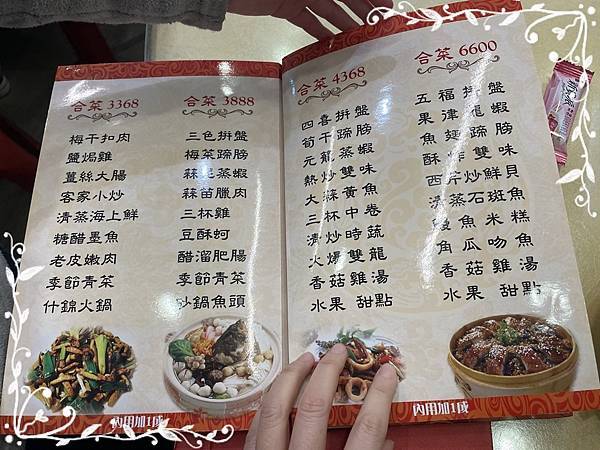 合菜 3368
梅干扣肉
鹽焗雞
薑絲大腸
客家小炒
清蒸海上鮮
糖醋墨魚
老皮嫩肉
季節青菜
什錦火鍋
合菜 3888
三色拼盤
梅菜蹄膀
蒜泥蒸蝦
蒜苗臘肉
三杯雞
豆酥蚵
醋溜肥腸
季節青菜
砂鍋魚頭
內用加1成
合菜 4368
四喜拼盤
筍干蹄膀
元龍蒸蝦
熱炒雙味
大蒜黃魚
三杯中卷
清炒時蔬
火爆雙龍
香菇雞湯
水果 甜點
合菜 6600
五福拼盤
果律龍蝦
魚翅蹄膀
酥炸雙味
西芹炒鮮貝
清蒸石斑魚
鰻魚米糕
角瓜吻魚
香菇雞湯
水果 甜點
內用加1成